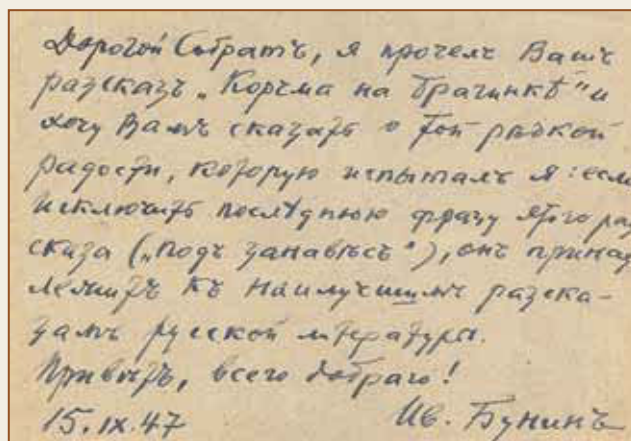 Дорогой Собратъ, я прочелъ Вашъ
разсказъ „Корчма на Брагинкѣ" и
хочу Вамъ сказать о той рѣдкой
радости, которую испыталъ я: если
исключить послѣднюю фразу этого раз
сказа („подъ занавѣсъ"), онъ принад
лежитъ къ наилучшимъ разска-
замъ русской литературы.
Привѣтъ, всего добраго!
15.IX.47 Ив. Бунинъ